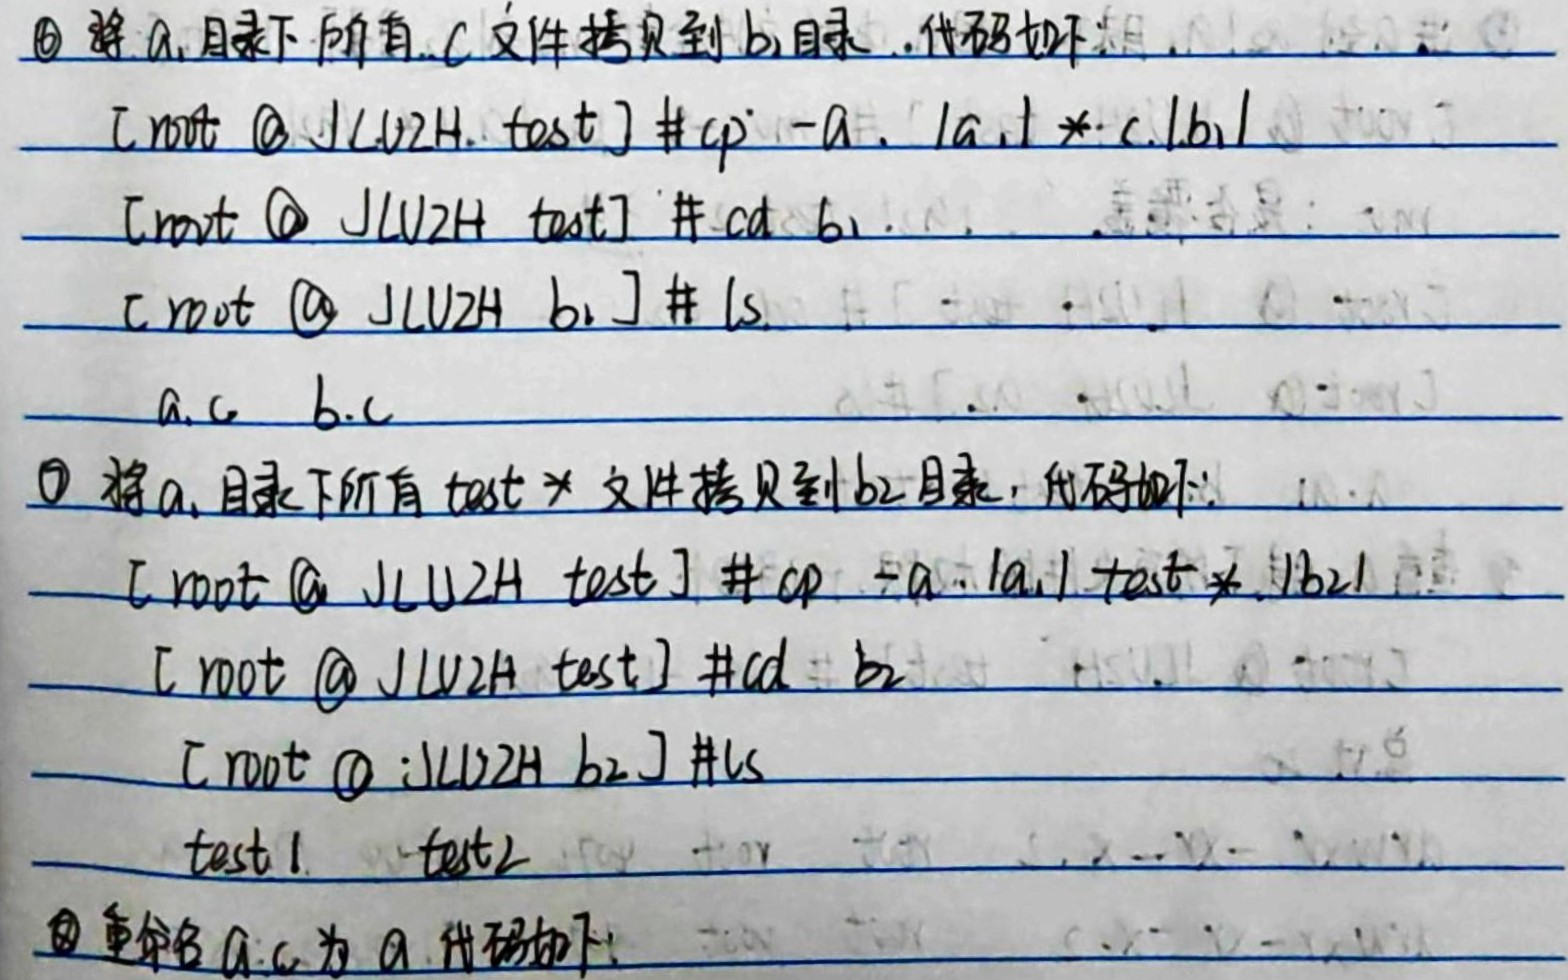 ⑥ 将a1目录下所有.c文件拷贝到b1目录.代码如下:
[root @ JLUZH test] # cp -a ./a1/*.c ./b1/
[root @ JLUZH test] # cd b1
[root @ JLUZH b1] # ls
a.c b.c
⑦ 将a1目录下所有test*文件拷贝到b2目录,代码如下:
[root @ JLUZH test] # cp -a ./a1/test* ./b2/
[root @ JLUZH test] #cd b2
[root @ JLUZH b2] #ls
test1 test2
⑧ 重命名a.c为a代码如下: